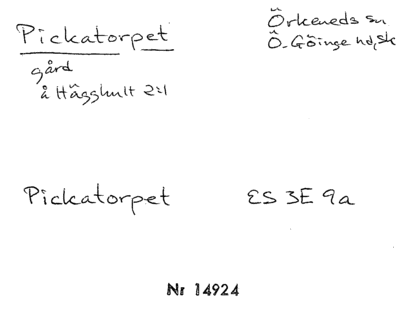 Pickatorpet
Örkeneds sn
Ö. Göinge hd, Sk
gård
å Hägghult 2:1
Pickatorpet
ES 3E 9a
Nr 14924